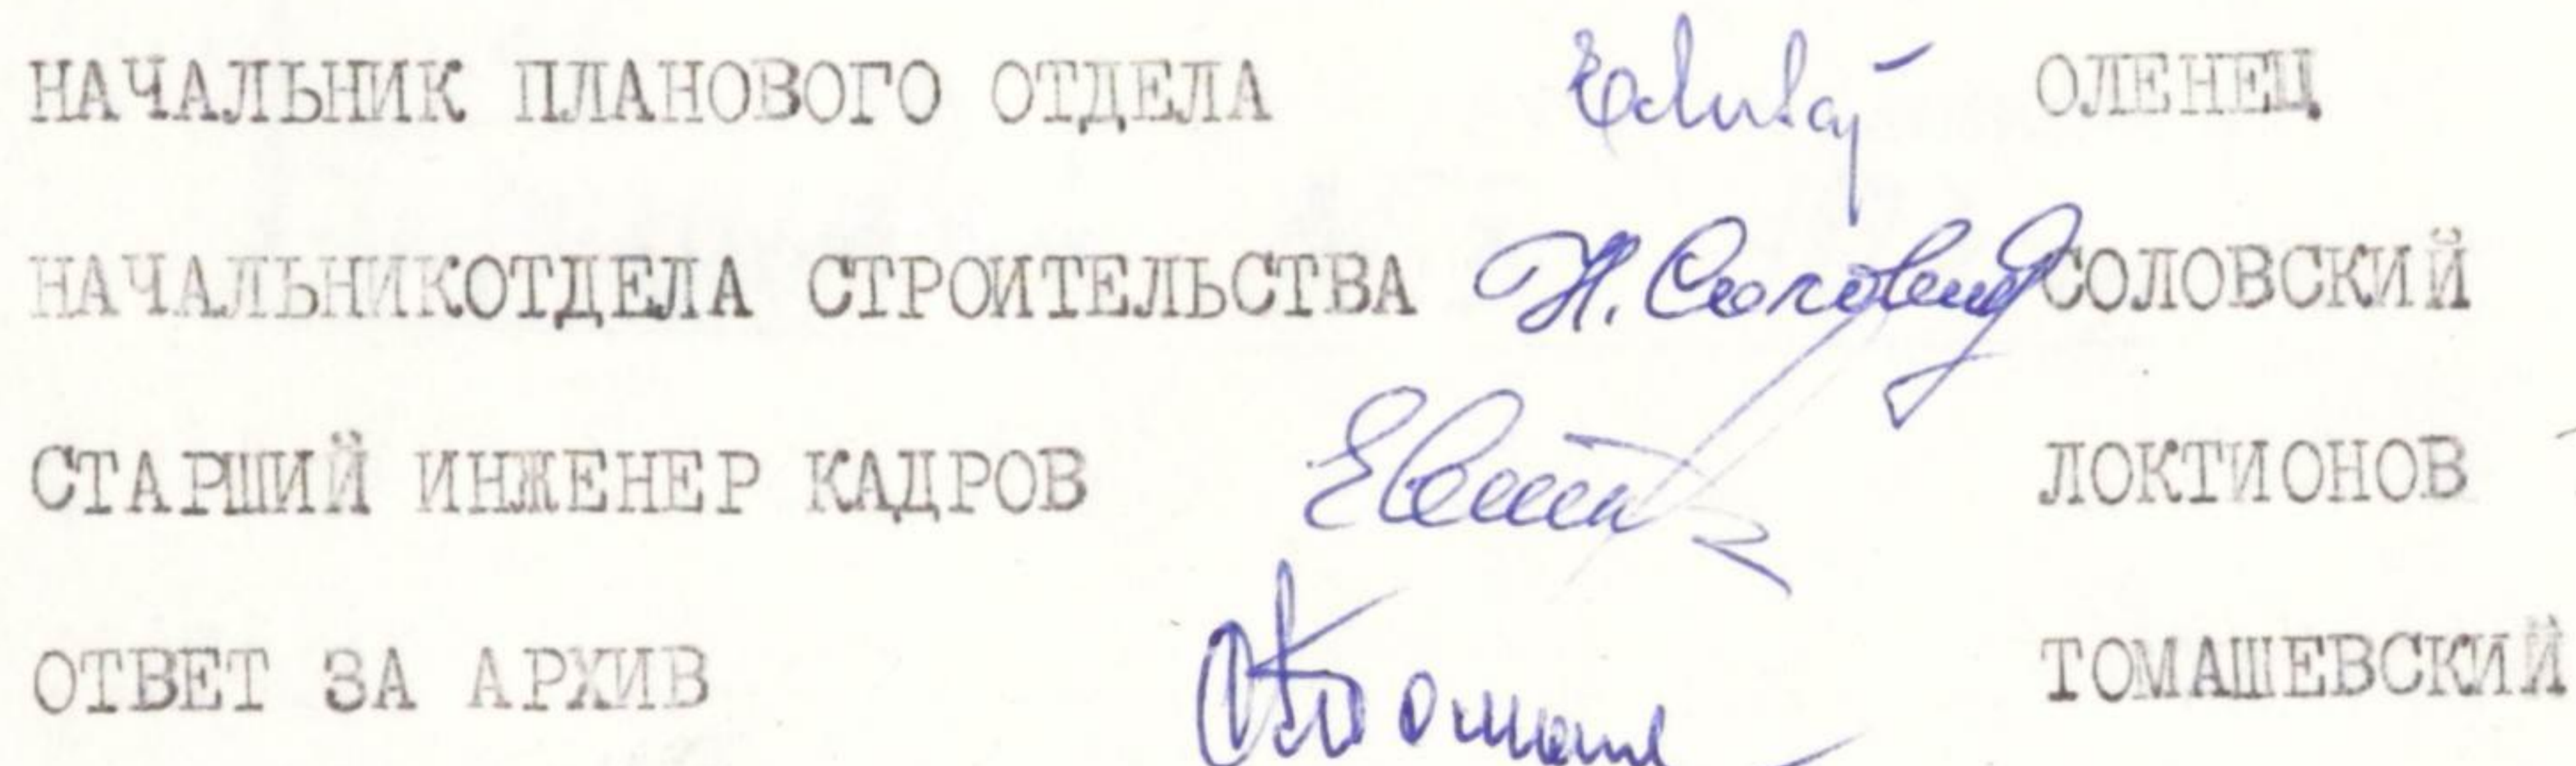 НАЧАЛЬНИК ПЛАНОВОГО ОТДЕЛА ОЛЕНЕЦ
НАЧАЛЬНИКОТДЕЛА СТРОИТЕЛЬСТВА Н. СОЛОВСКИЙ
СТАРШИЙ ИНЖЕНЕР КАДРОВ ЛОКТИОНОВ
ОТВЕТ ЗА АРХИВ ТОМАШЕВСКИЙ